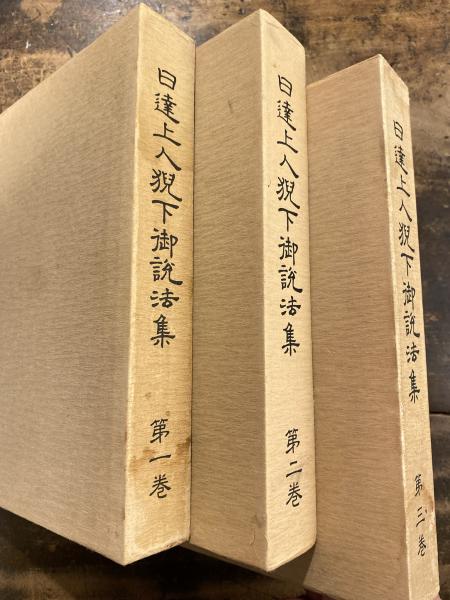 日達上人猊下御説法集
第一巻
日達上人猊下御説法集
第二巻
日達上人猊下御説法集
第三巻